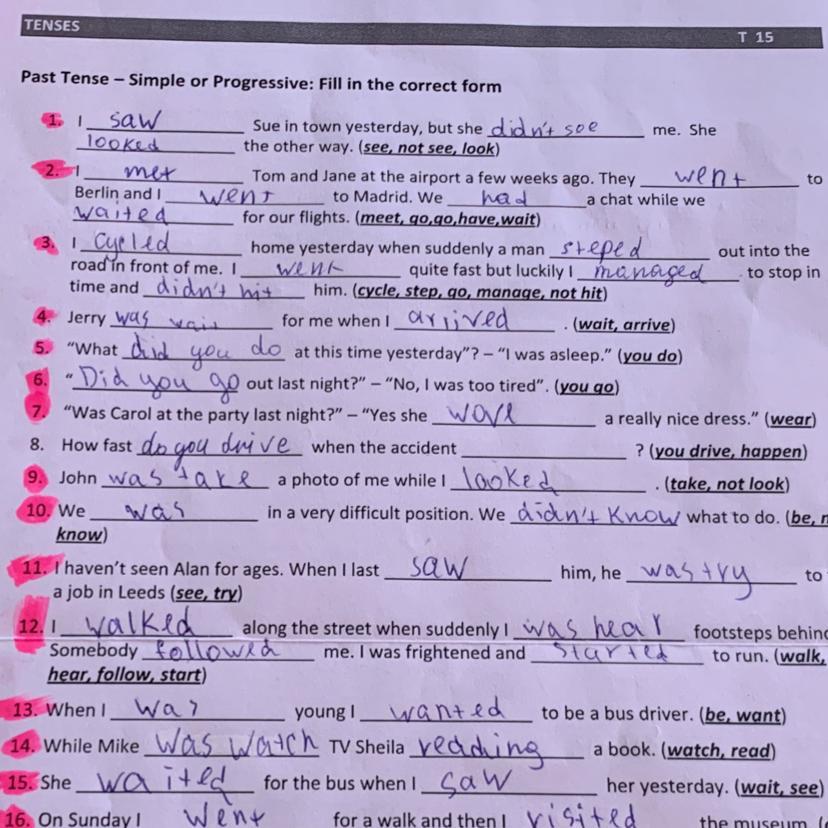 TENSES T 15
Past Tense – Simple or Progressive: Fill in the correct form
1. I saw Sue in town yesterday, but she didn't see me. She
looked the other way. (see, not see, look)
2. I met Tom and Jane at the airport a few weeks ago. They went to
Berlin and I went to Madrid. We had a chat while we
waited for our flights. (meet, go,go,have,wait)
3. I cycled home yesterday when suddenly a man steped out into the
road in front of me. I went quite fast but luckily I managed to stop in
time and didn't hit him. (cycle, step, go, manage, not hit)
4. Jerry was wait for me when I arrived . (wait, arrive)
5. “What did you do at this time yesterday”? – “I was asleep.” (you do)
6. “Did you go out last night?” – “No, I was too tired”. (you go)
7. “Was Carol at the party last night?” – “Yes she wore a really nice dress.” (wear)
8. How fast do you drive when the accident ____ ? (you drive, happen)
9. John was take a photo of me while I looked . (take, not look)
10. We was in a very difficult position. We didn't know what to do. (be, n
know)
11. I haven’t seen Alan for ages. When I last saw him, he was try to
a job in Leeds (see, try)
12. I walked along the street when suddenly I was hear footsteps behind
Somebody followed me. I was frightened and started to run. (walk,
hear, follow, start)
13. When I was young I wanted to be a bus driver. (be, want)
14. While Mike was watch TV Sheila reading a book. (watch, read)
15. She waited for the bus when I saw her yesterday. (wait, see)
16. On Sunday I went for a walk and then I visited the museum